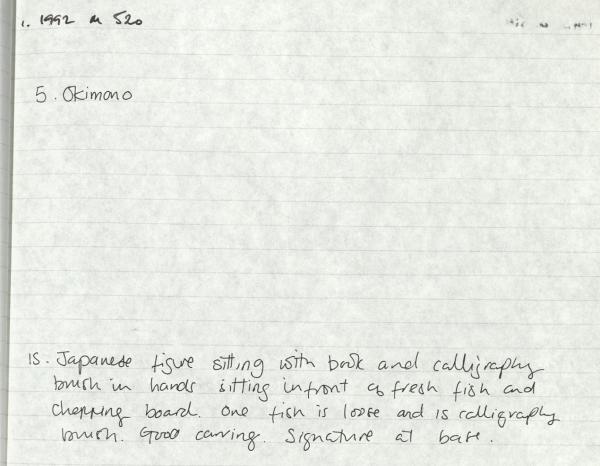 1. 1992 m 520
5. Okimono
15. Japanese figure sitting with book and calligraphy
brush in hands sitting infront of fresh fish and
chopping board. One fish is loose and is calligraphy
brush. Good carving. Signature at base.